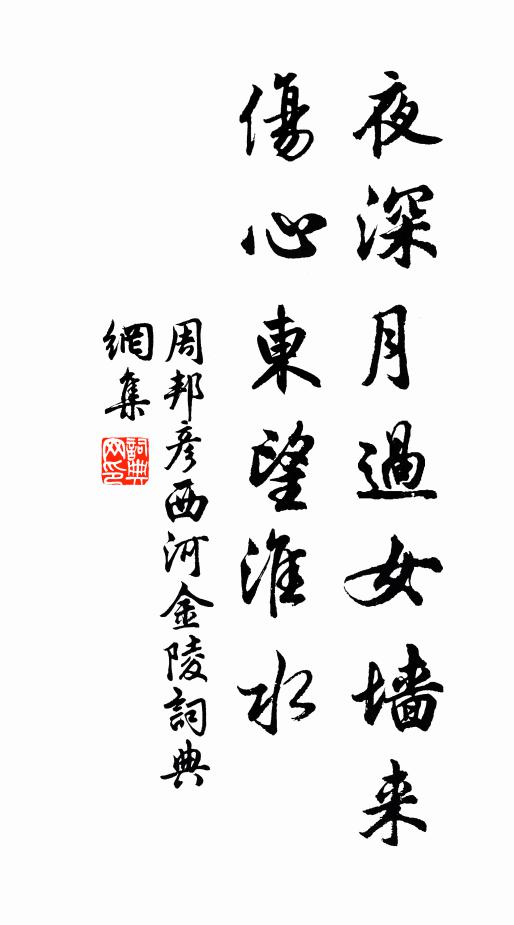 夜深月過女墙来
傷心東望淮水
周邦彦西河金陵詞典
網集
詞典
网印